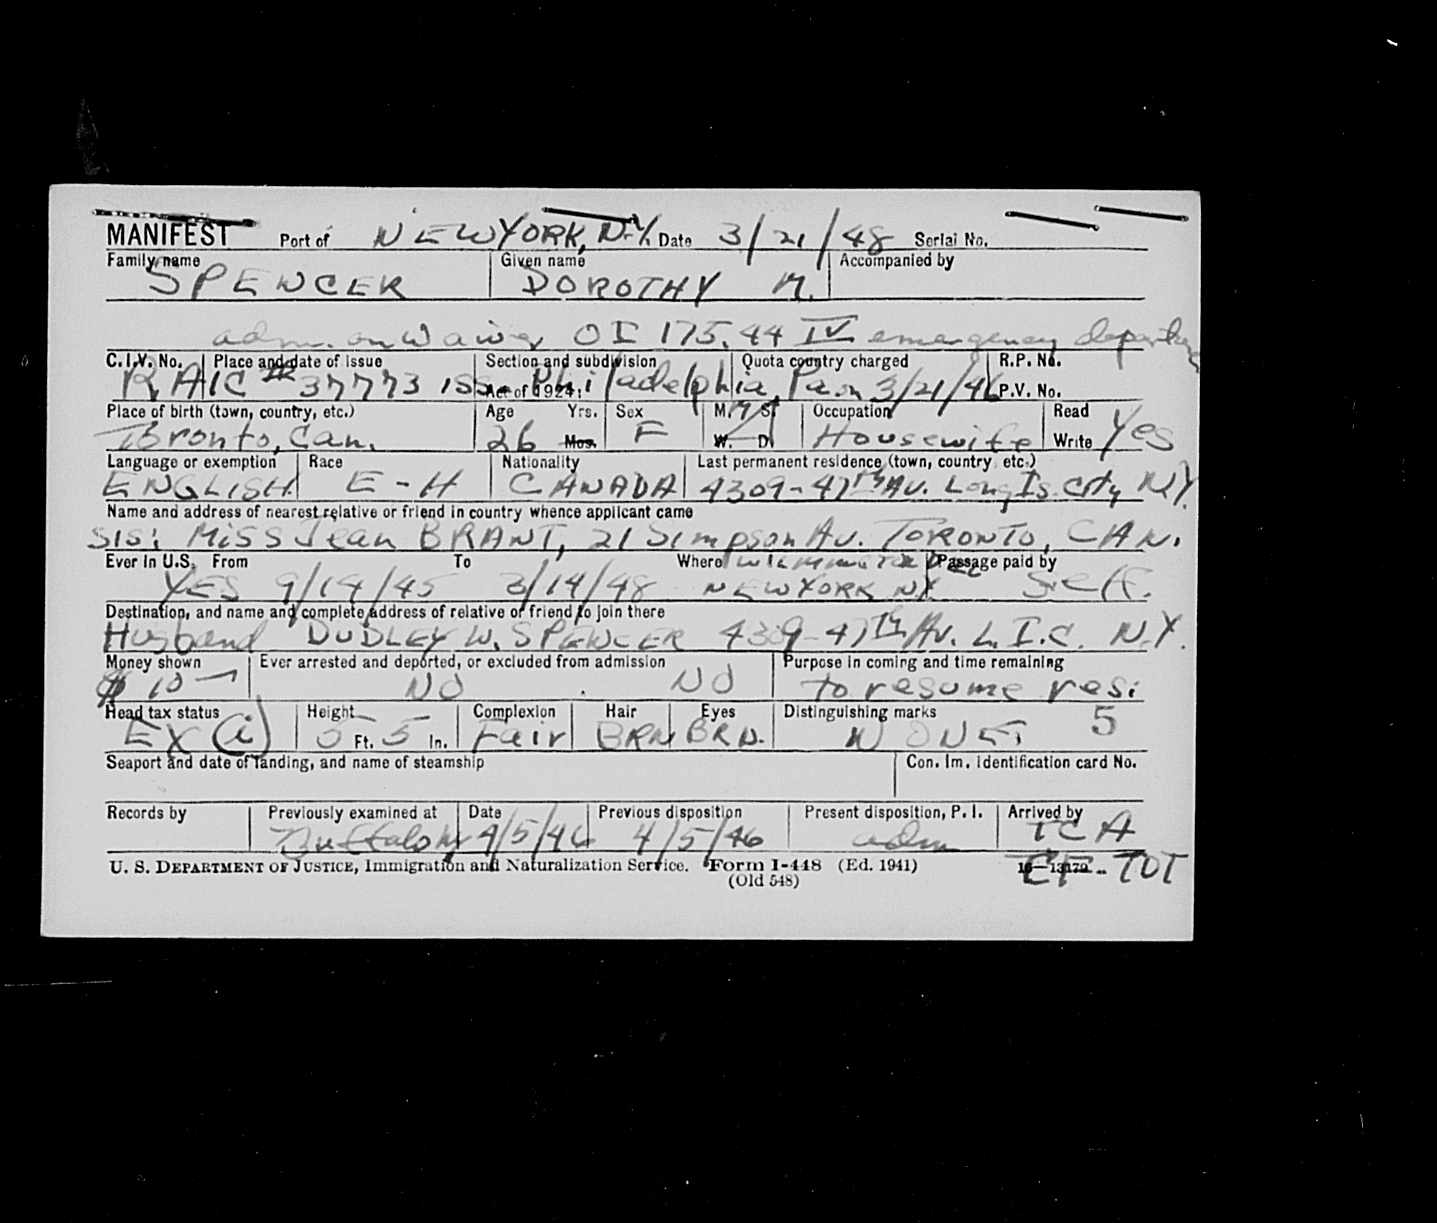 MANIFEST Port of NEW YORK, N.Y. Date 3/21/48 Serial No.
Family name Given name Accompanied by
SPENCER DOROTHY M.
adm. on Waiver OI 175.44 IV emergency departure
C.I.V. No. Place and date of issue Section and subdivision Quota country charged R.P. No.
RAIC # 37773 iss. Philadelphia, Pa. on 3/21/46
Act of 1924: P.V. No.
Place of birth (town, country, etc.) Age Yrs. Sex M. S. Occupation Read
Toronto, Can. 26 Mos. F W. D. Housewife Write Yes
Language or exemption Race Nationality Last permanent residence (town, country etc.)
ENGLISH E-H CANADA 4309-47th Av. Long Is. City NY.
Name and address of nearest relative or friend in country whence applicant came
SIS: MISS Jean BRANT, 21 Simpson Av. TORONTO, CAN.
Ever in U.S. From To Where Passage paid by
YES 9/14/45 3/14/48 NEW YORK NY. Self.
Destination, and name and complete address of relative or friend to join there
Husband DUDLEY W. SPENCER 4309-47th Av. L.I.C. N.Y.
Money shown Ever arrested and deported, or excluded from admission Purpose in coming and time remaining
$10 NO NO to resume resi
Head tax status Height Complexion Hair Eyes Distinguishing marks 5
EX (i) 5 Ft. 5 In. Fair BRN BRN. NONE
Seaport and date of landing, and name of steamship Con. Im. Identification card No.
Records by Previously examined at Date Previous disposition Present disposition, P. I. Arrived by
Buffalo NY 4/5/46 4/5/46 adm TCA
U. S. DEPARTMENT OF JUSTICE, Immigration and Naturalization Service. Form I-448 (Ed. 1941) 16—13179 CF-TOT
(Old 548)